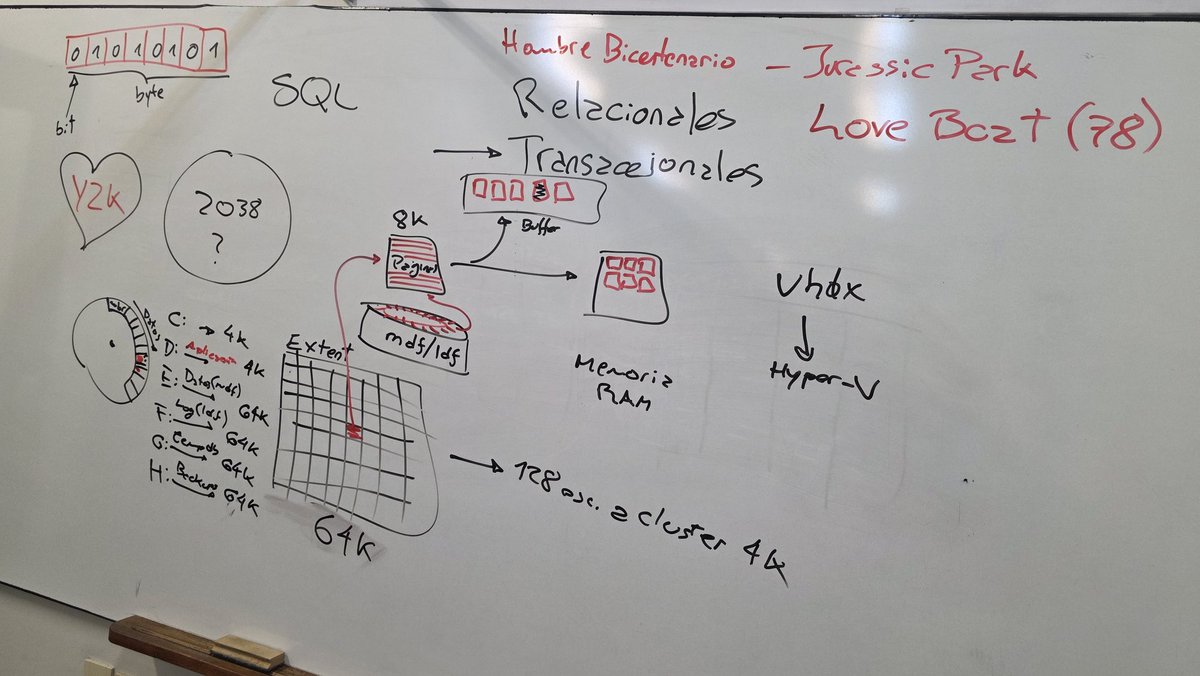 0 1 0 1 0 1 0 1
byte
bit
SQL
Hombre Bicentenario - Jurassic Park
Love Boat (78)
Relacionales
Transaccionales
Y2K
2038
?
8K
Páginas
Buffer
mdf/ldf
Memoria
RAM
Vhdx
Hyper-V
Datos
C: 4k
D: Aplicación 4k
E: Datos(mdf) 64k
F: Log(ldf) 64k
G: Tempdb 64k
H: Backup 64k
Extent
64K
128 a cluster 4k